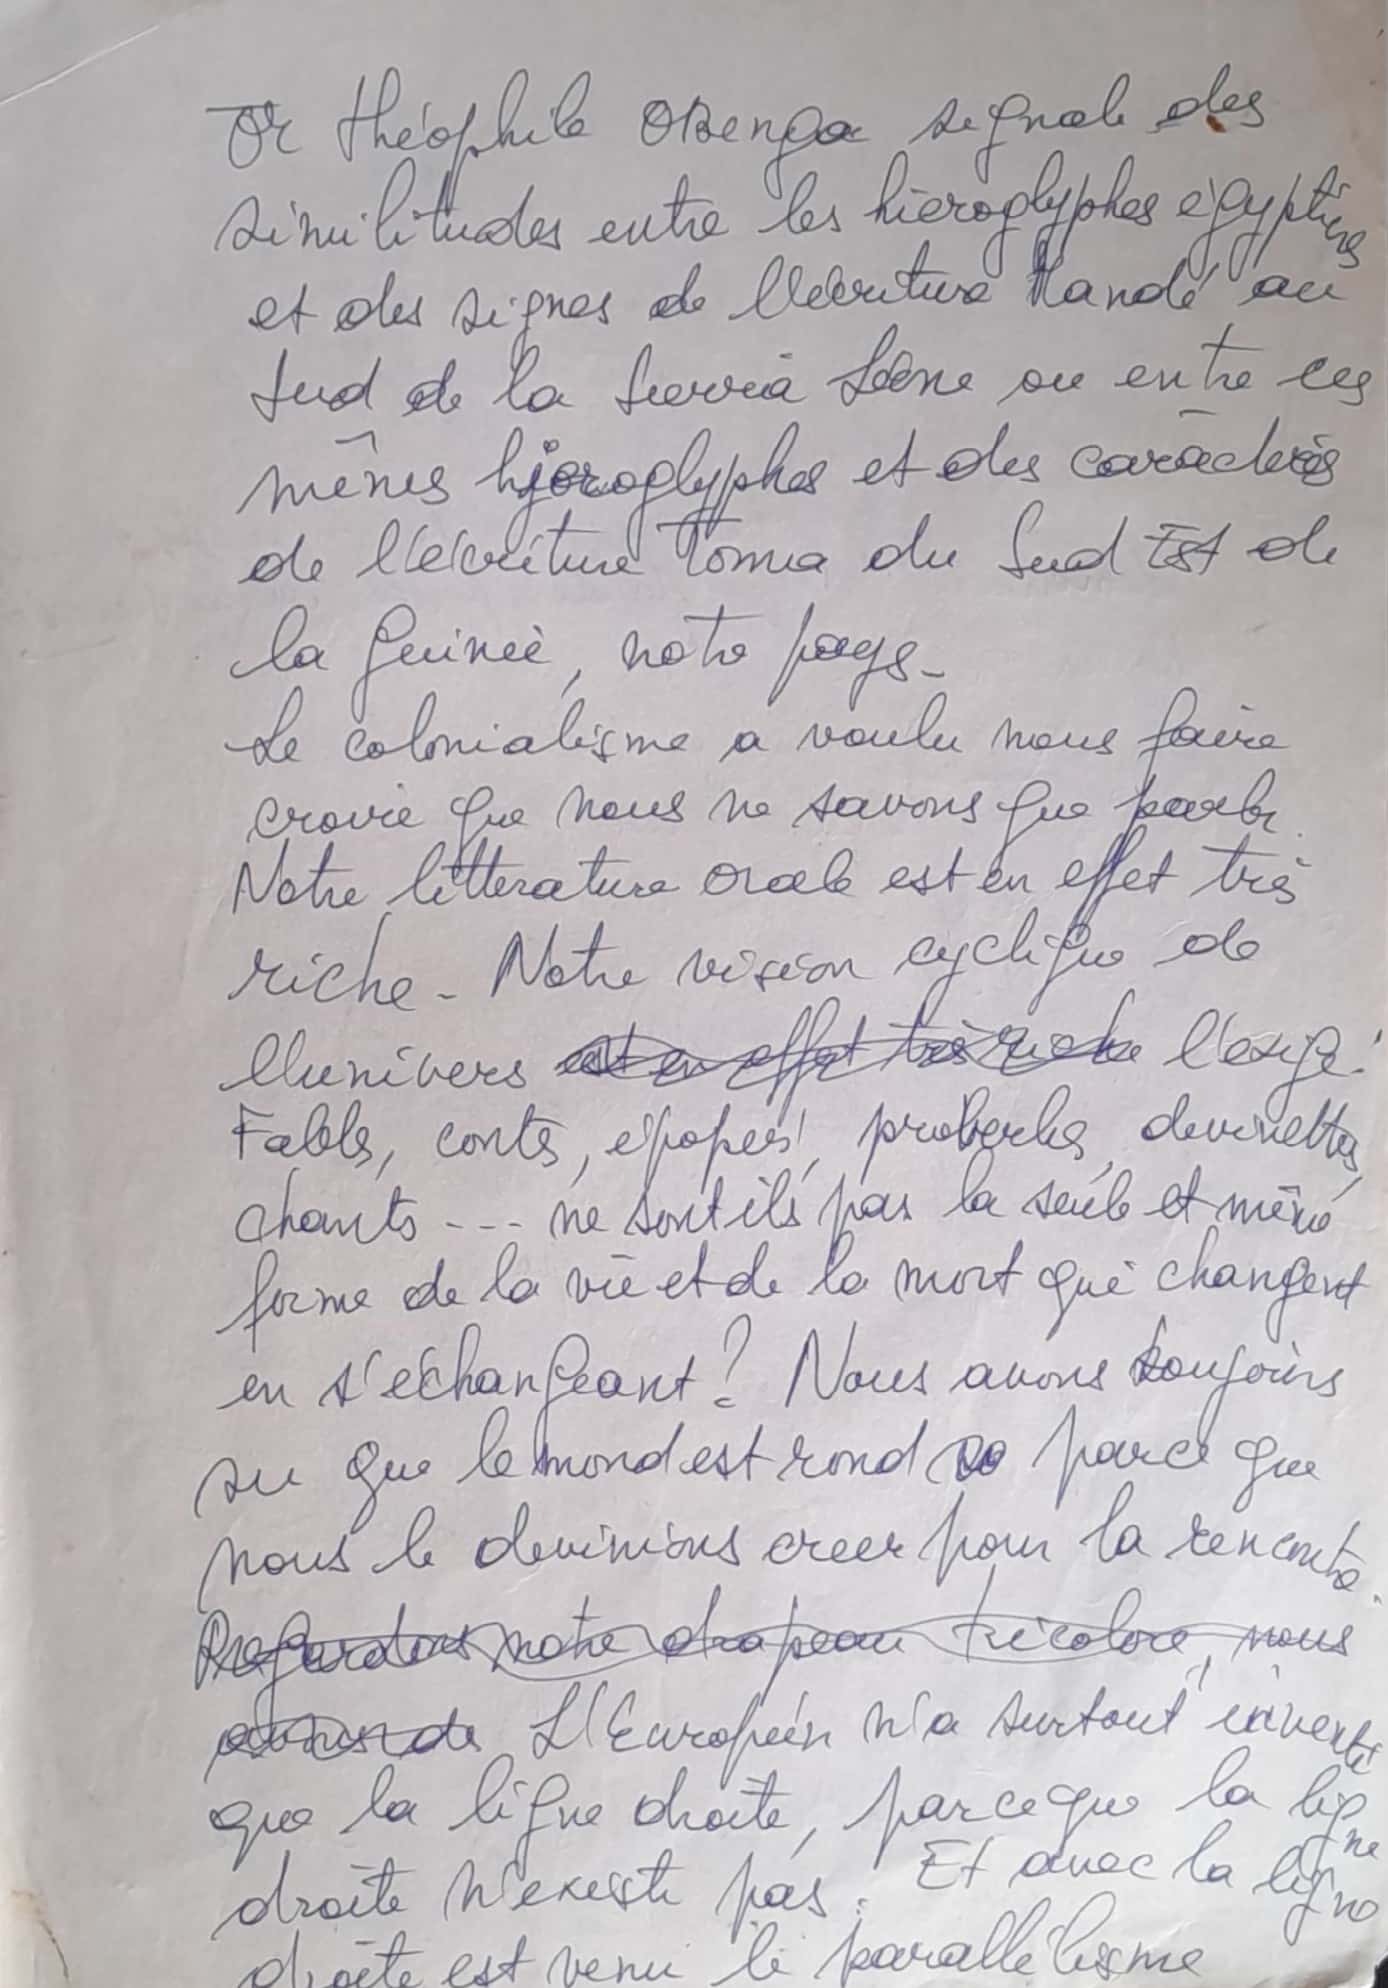 Or théophile OBenga signale des
similitudes entre les hieroglyphes égyptiens
et des signes de l'écriture Mandé au
Sud de la Sierra Léone ou entre ces
mêmes hieroglyphes et des caractères
de l'écriture Toma du Sud Est de
la Guinée, notre pays_
Le colonialisme a voulu nous faire
croire que nous ne savons que parler.
Notre litterature orale est en effet très
riche_ Notre vision cyclique de
l'univers est en effet très riche l'exige.
Fables, contes, épopées, proverbes, devinettes,
chants --- ne sont ils pas la seule et même
forme de la vie et de la mort qui changent
en s'échangeant? Nous avons toujours
su que le mond est rond parce que
nous le devinions creer pour la rencontre.
Regardons notre drapeau tricolore, nous
L'Européen n'a surtout inventé
que la ligne droite, parceque la ligne
droite n'existe pas. Et avec la ligne
droite est venu le parallélisme